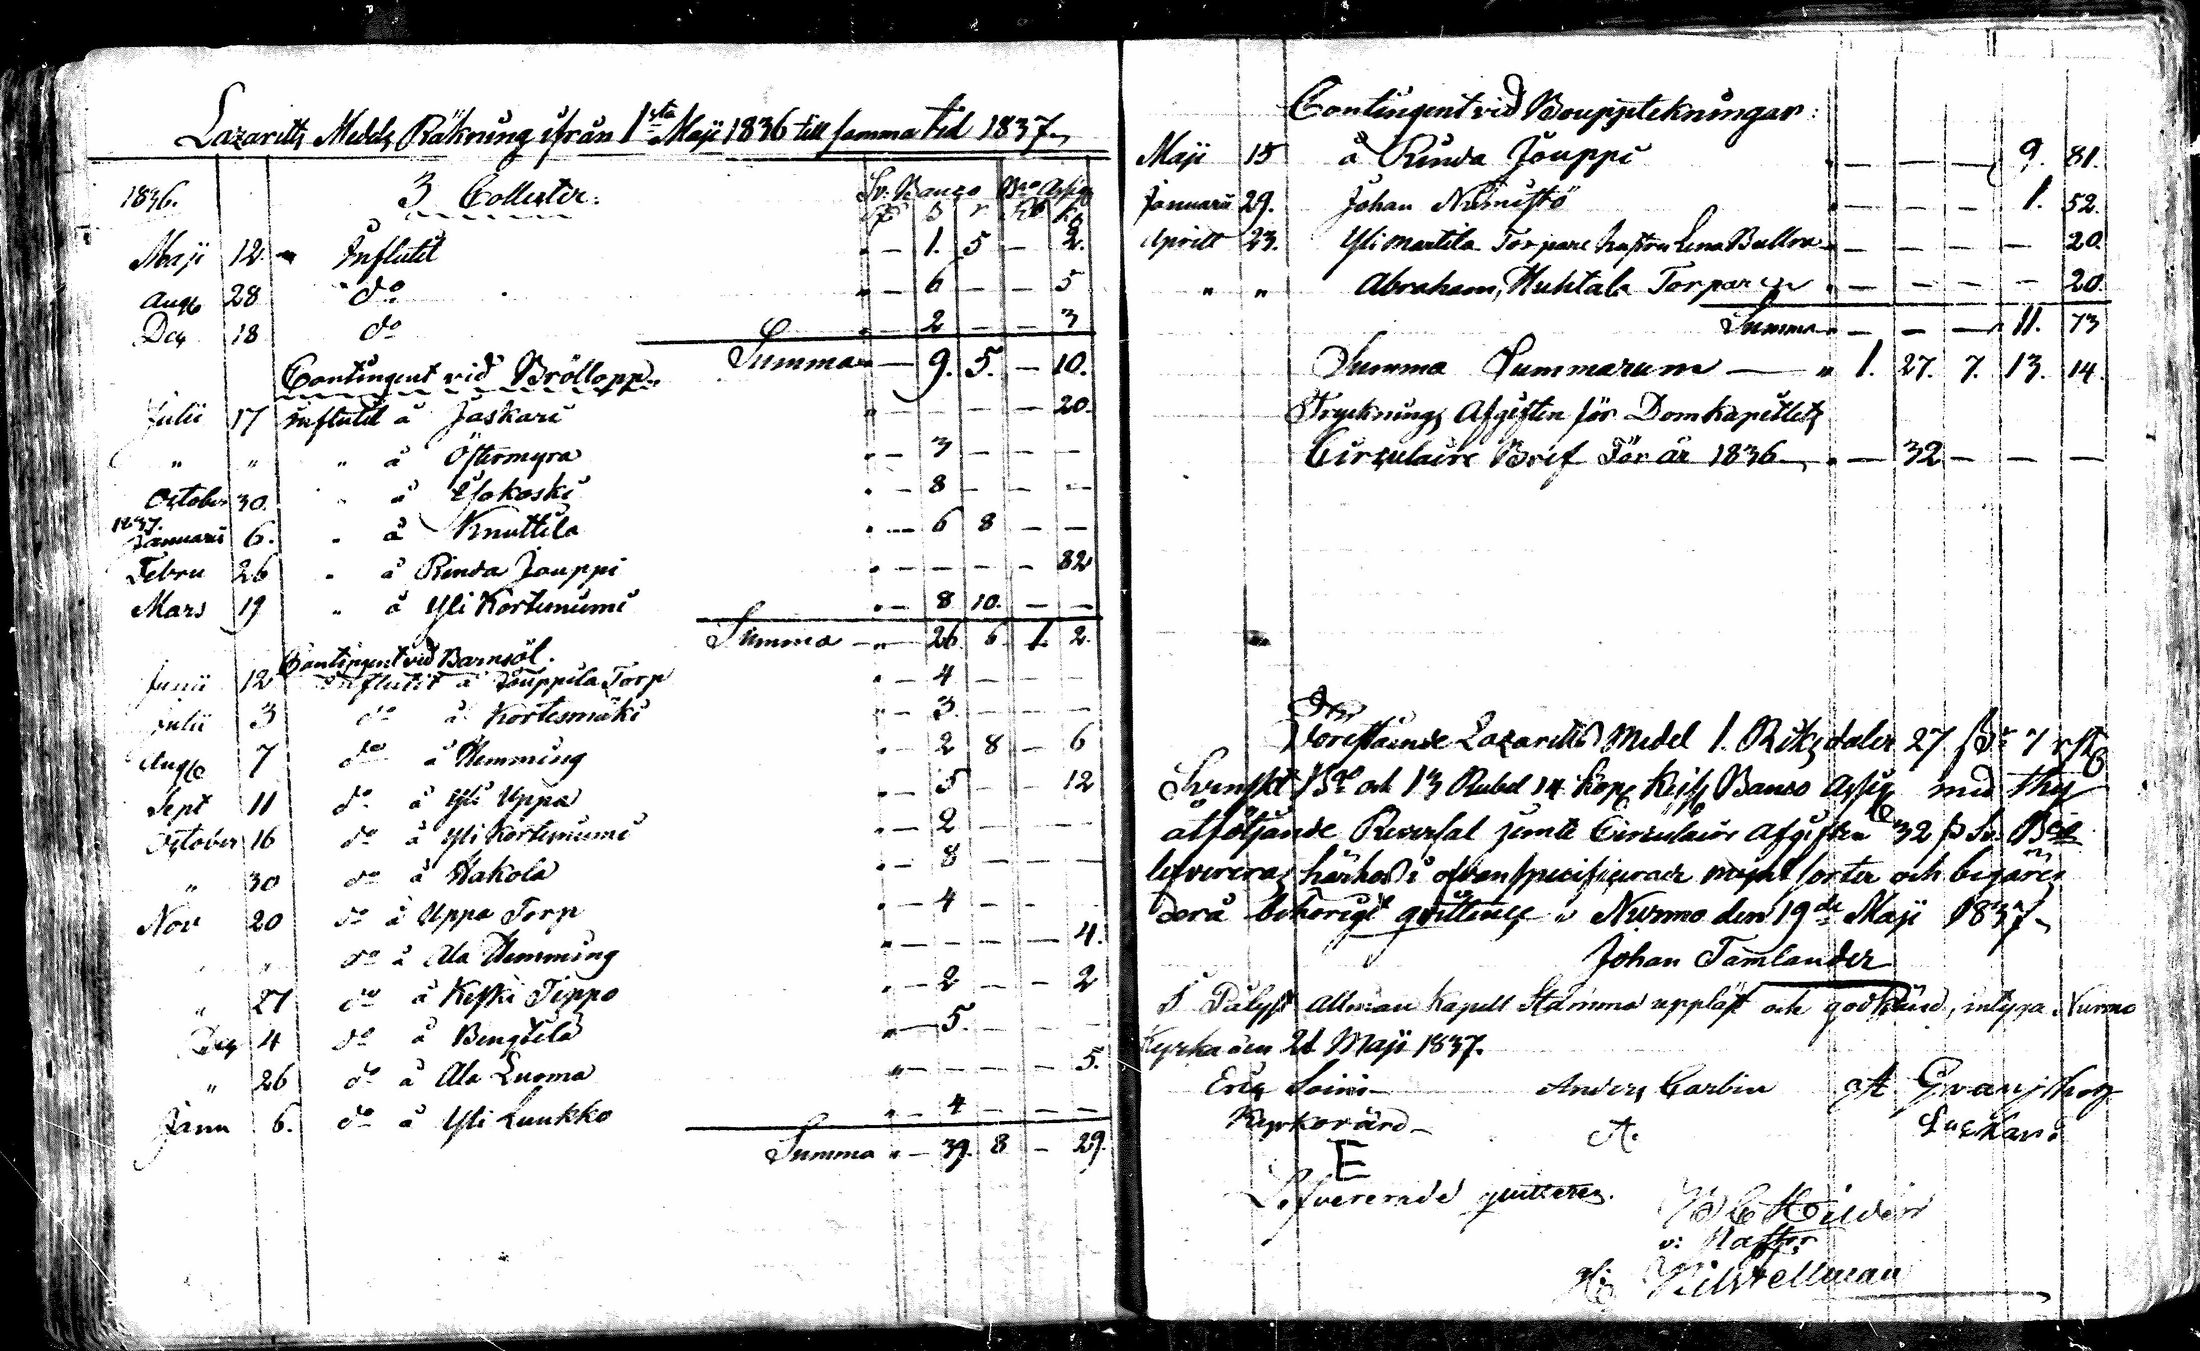 Lazaretts Medels Räkning ifrån 1sta Maji 1836 till samma tid 1837.
1836. 3 Collecter. Sv. Banco Bco Assig
Rd s r Rb k
Maji 12. Influtit " — 1. 5 — 2.
Aug 28 do " — 6 — — 5
Dec 18 do " — 2 — — 3
Summa " — 9. 5. — 10.
Contingent vid Bröllopp.
Julii 17 influtit å Jaskari " — — — — 20.
" " " å Östermyra " — 3 — — —
October 30. " å Ylokoski " — 8 — — —
1837.
Januarii 6. " å Knuttila " — 6 8 — —
Febru 26 " å Rinda Jouppi " — — — — 82
Mars 19 " å Yli Kortesnumi " — 8 10. — —
Summa — " — 26 6 1. 2.
Contingent vid Barnsöl.
Junii 12 Influtit å Jouppila Torp " — 4 — — —
Julii 3 do å Kortesmäki " — 3. — — —
Aug 7 do å Hemming " — 2 8 — 6
Sept 11 do å Yli Uppa " — 5 — — 12
October 16 do å Yli Kortesnumi " — 2 — — —
" 30 do å Hakola " — 8 — — —
Nov 20 do å Uppa Torp " — 4 — — —
" " do å Ala Hemming " — — — — 4.
" 27 do å Keski Tippo " — 2 — — 2
Dec 4 do å Bengtila " — 5. — — —
" 26 do å Ala Luoma " — — — — 5.
Janu 6. do å Yli Luukko " — 4 — — —
Summa " — 39. 8 — 29.
Contingent vid Boupptekningar.
Maji 15 å Rinda Jouppi " — — — 9. 81.
Januarii 29. Johan Niemistö " — — — 1. 52.
Aprill 23. Yli Martila Torpare hustru Lena " — — — — 20.
" " Abraham Huhtala Torparen " — — — — 20.
Summa " — — — 11. 73
Summa Summarum — " 1. 27. 7. 13. 14.
Trycknings Afgiften för Domkapitlets
Circulaire Bref För år 1836 " — 32 — — —
Förestående Lazaretts Medel 1. Riksdaler 27 s 7 rst
Svenskt Bco och 13 Rubel 14 Kop Banco Assig med thy
åtföljande Reversal jemte Circulaire Afgiften 32 s Sv. Bco
lefvereras härhos i ofvanspecificerade mynt sorter och begäres
derå behörigt qvittence. Nurmo den 19de Maji 1837.
Johan Tamlander
I Pålyst allmän Kapell Stämma uppläst och godkänd, intyga Nurmo
Kyrka den 21 Maji 1837.
Eric Anders Carbin A
Kyrkovärd
E A.
Lefvererade qvitteras.